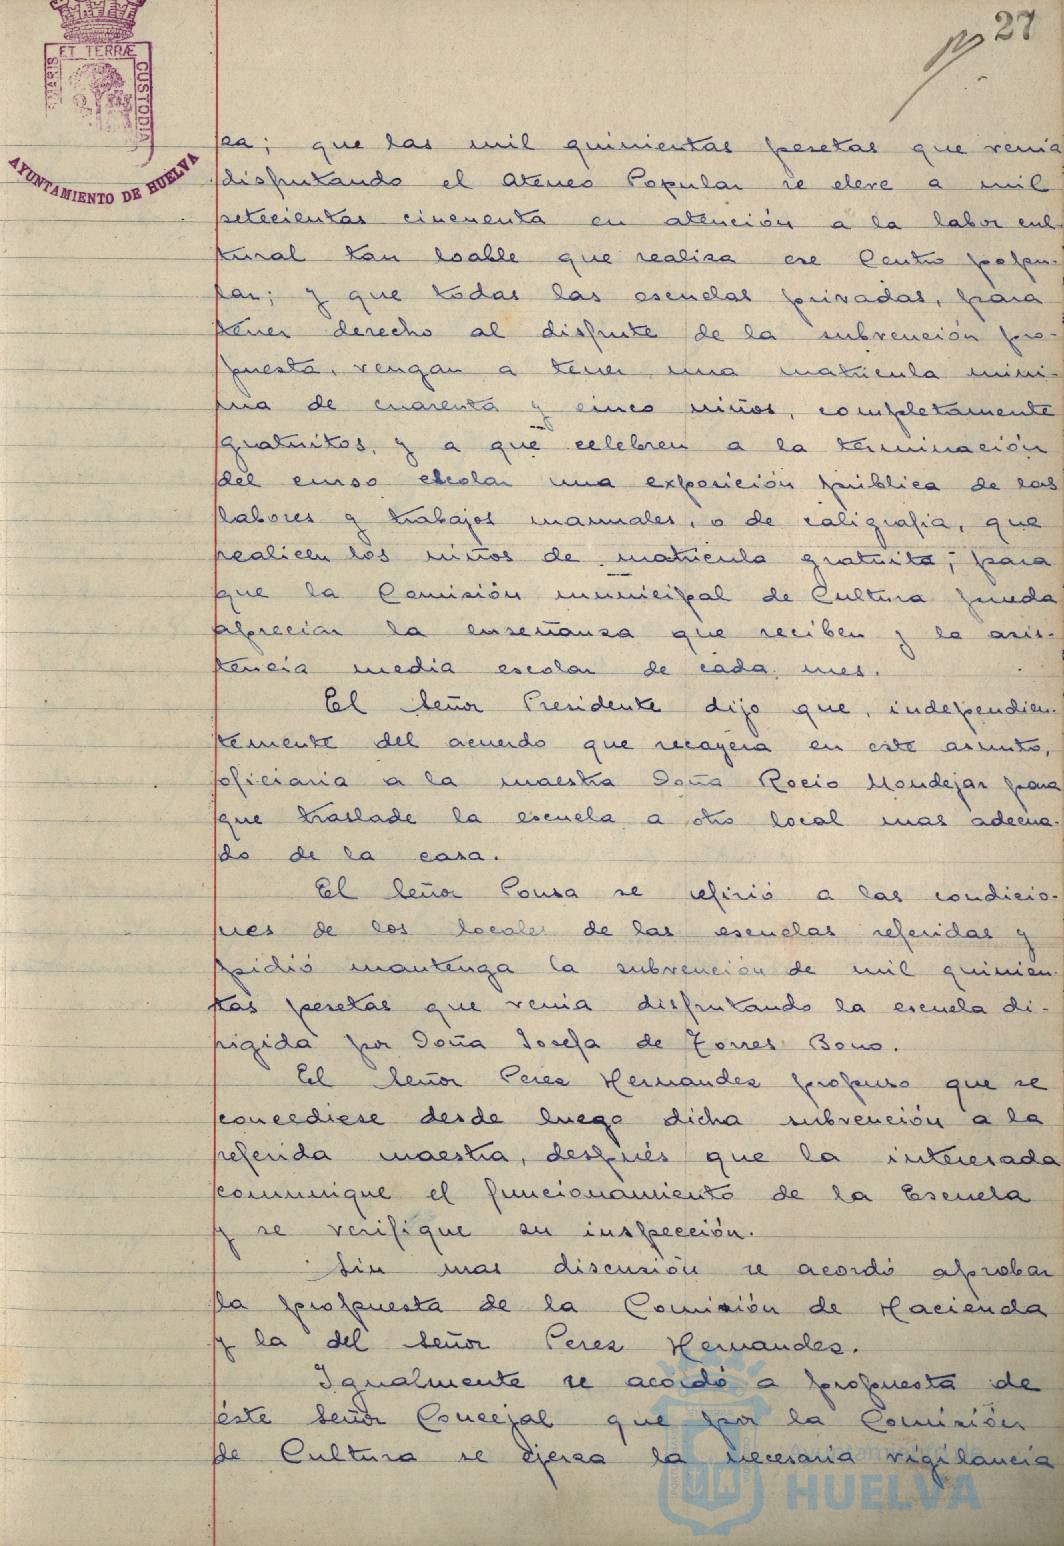 27
MARIS ET TERRÆ CUSTODIA
AYUNTAMIENTO DE HUELVA
ea; que las mil quinientas pesetas que venia
disfrutando el Ateneo Popular se eleve a mil
setecientas cincuenta en atención a la labor cul-
tural tan loable que realiza ese Centro popu-
lar; y que todas las escuelas privadas, para
tener derecho al disfrute de la subvención pro-
puesta, vengan a tener una matricula mini-
ma de cuarenta y cinco niños, completamente
gratuitos, y a que celebren a la terminación
del curso escolar una exposición pública de las
labores y trabajos manuales, o de caligrafia, que
realicen los niños de matricula gratuita, para
que la Comisión municipal de Cultura pueda
apreciar la enseñanza que reciben y la asis-
tencia media escolar de cada mes.
El Señor Presidente dijo que, independien-
temente del acuerdo que recayera en este asunto,
oficiaria a la maestra Doña Rocio Mondejar para
que traslade la escuela a otro local mas adecua-
do de la casa.
El Señor Ponsa se refirió a las condicio-
nes de los locales de las escuelas referidas y
pidió mantenga la subvención de mil quinien-
tas pesetas que venia disfrutando la escuela di-
rigida por Doña Josefa de Torres Bono.
El Señor Perez Hernandez propuso que se
concediese desde luego dicha subvención a la
referida maestra, después que la interesada
comunique el funcionamiento de la Escuela
y se verifique su inspección.
Sin mas discusión se acordó aprobar
la propuesta de la Comisión de Hacienda
y la del Señor Perez Hernandez.
Igualmente se acordó a propuesta de
éste Señor Concejal que por la Comisión
de Cultura se ejerza la necesaria vigilancia
Ayuntamiento de
HUELVA